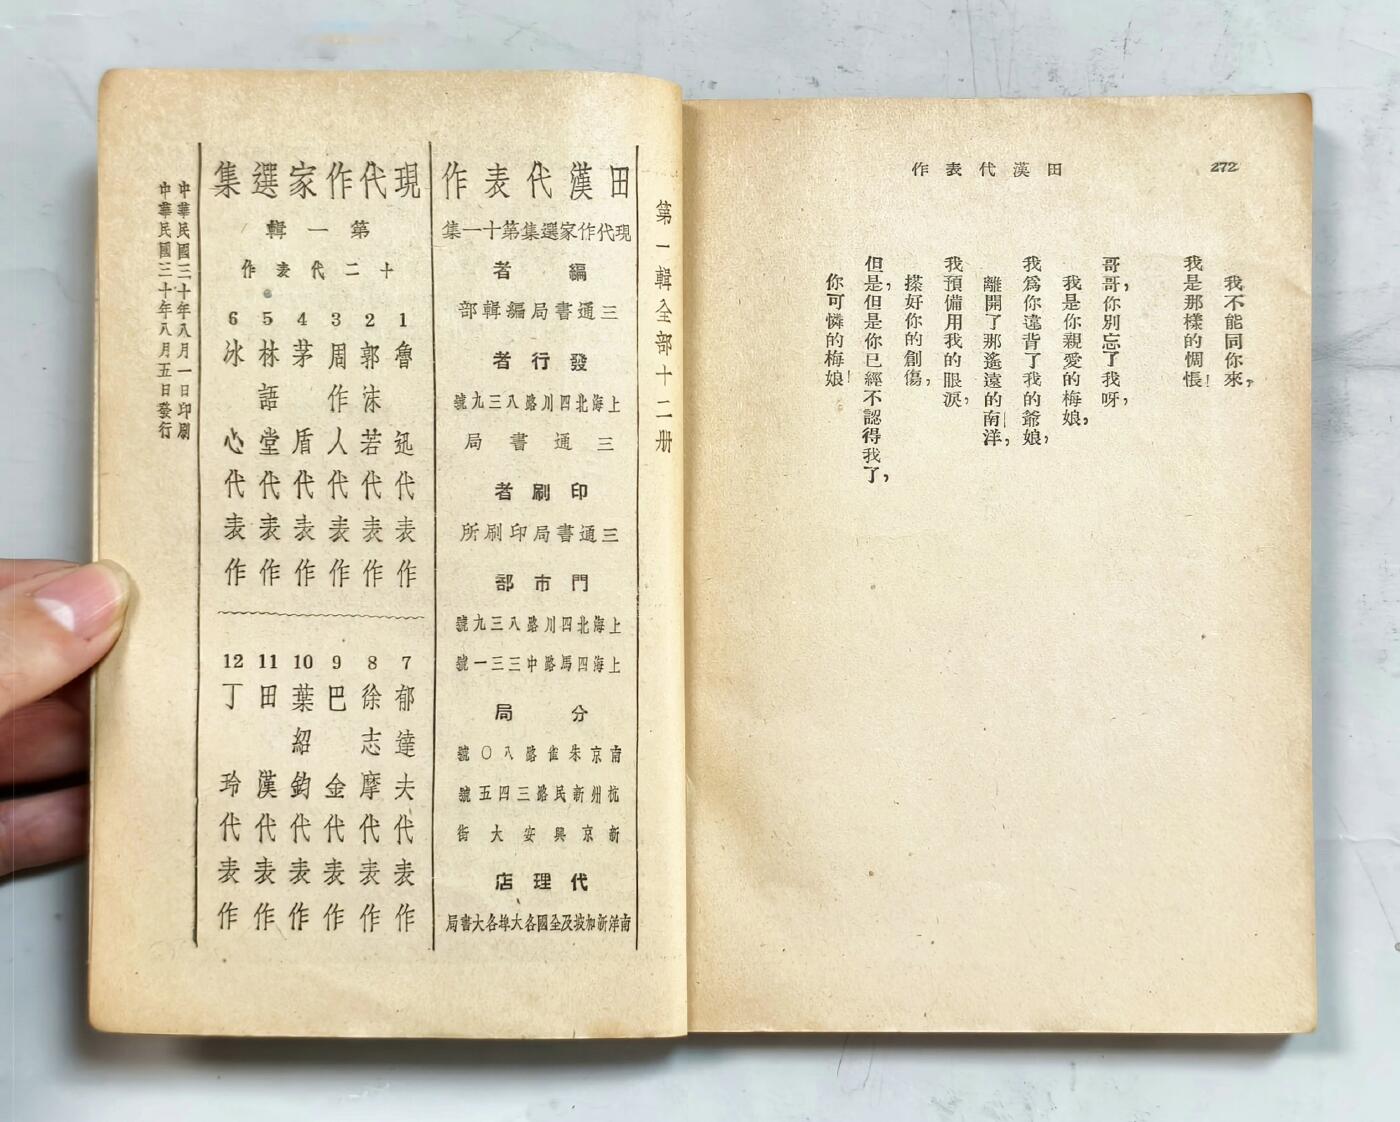 272
田漢代表作
我不能同你來,
我是那樣的惆悵!
哥哥,你別忘了我呀,
我是你親愛的梅娘,
我爲你違背了我的爺娘,
離開了那遙遠的南洋,
我預備用我的眼淚,
搽好你的創傷,
但是,但是你已經不認得我了,
你可憐的梅娘!
第一輯全部十二册
田漢代表作
現代作家選集第十一集
編者
三通書局編輯部
發行者
上海北四川路八三九號
三通書局
印刷者
三通書局印刷所
門市部
上海北四川路八三九號
上海四馬路中三三一號
分局
南京朱雀路八〇號
杭州新民路三四五號
新京興安大街
代理店
南洋新加坡及全國各大埠各大書局
現代作家選集
第一輯
十二代表作
1 魯迅代表作
2 郭沫若代表作
3 周作人代表作
4 茅盾代表作
5 林語堂代表作
6 冰心代表作
7 郁達夫代表作
8 徐志摩代表作
9 巴金代表作
10 葉紹鈞代表作
11 田漢代表作
12 丁玲代表作
中華民國三十年八月一日印刷
中華民國三十年八月五日發行